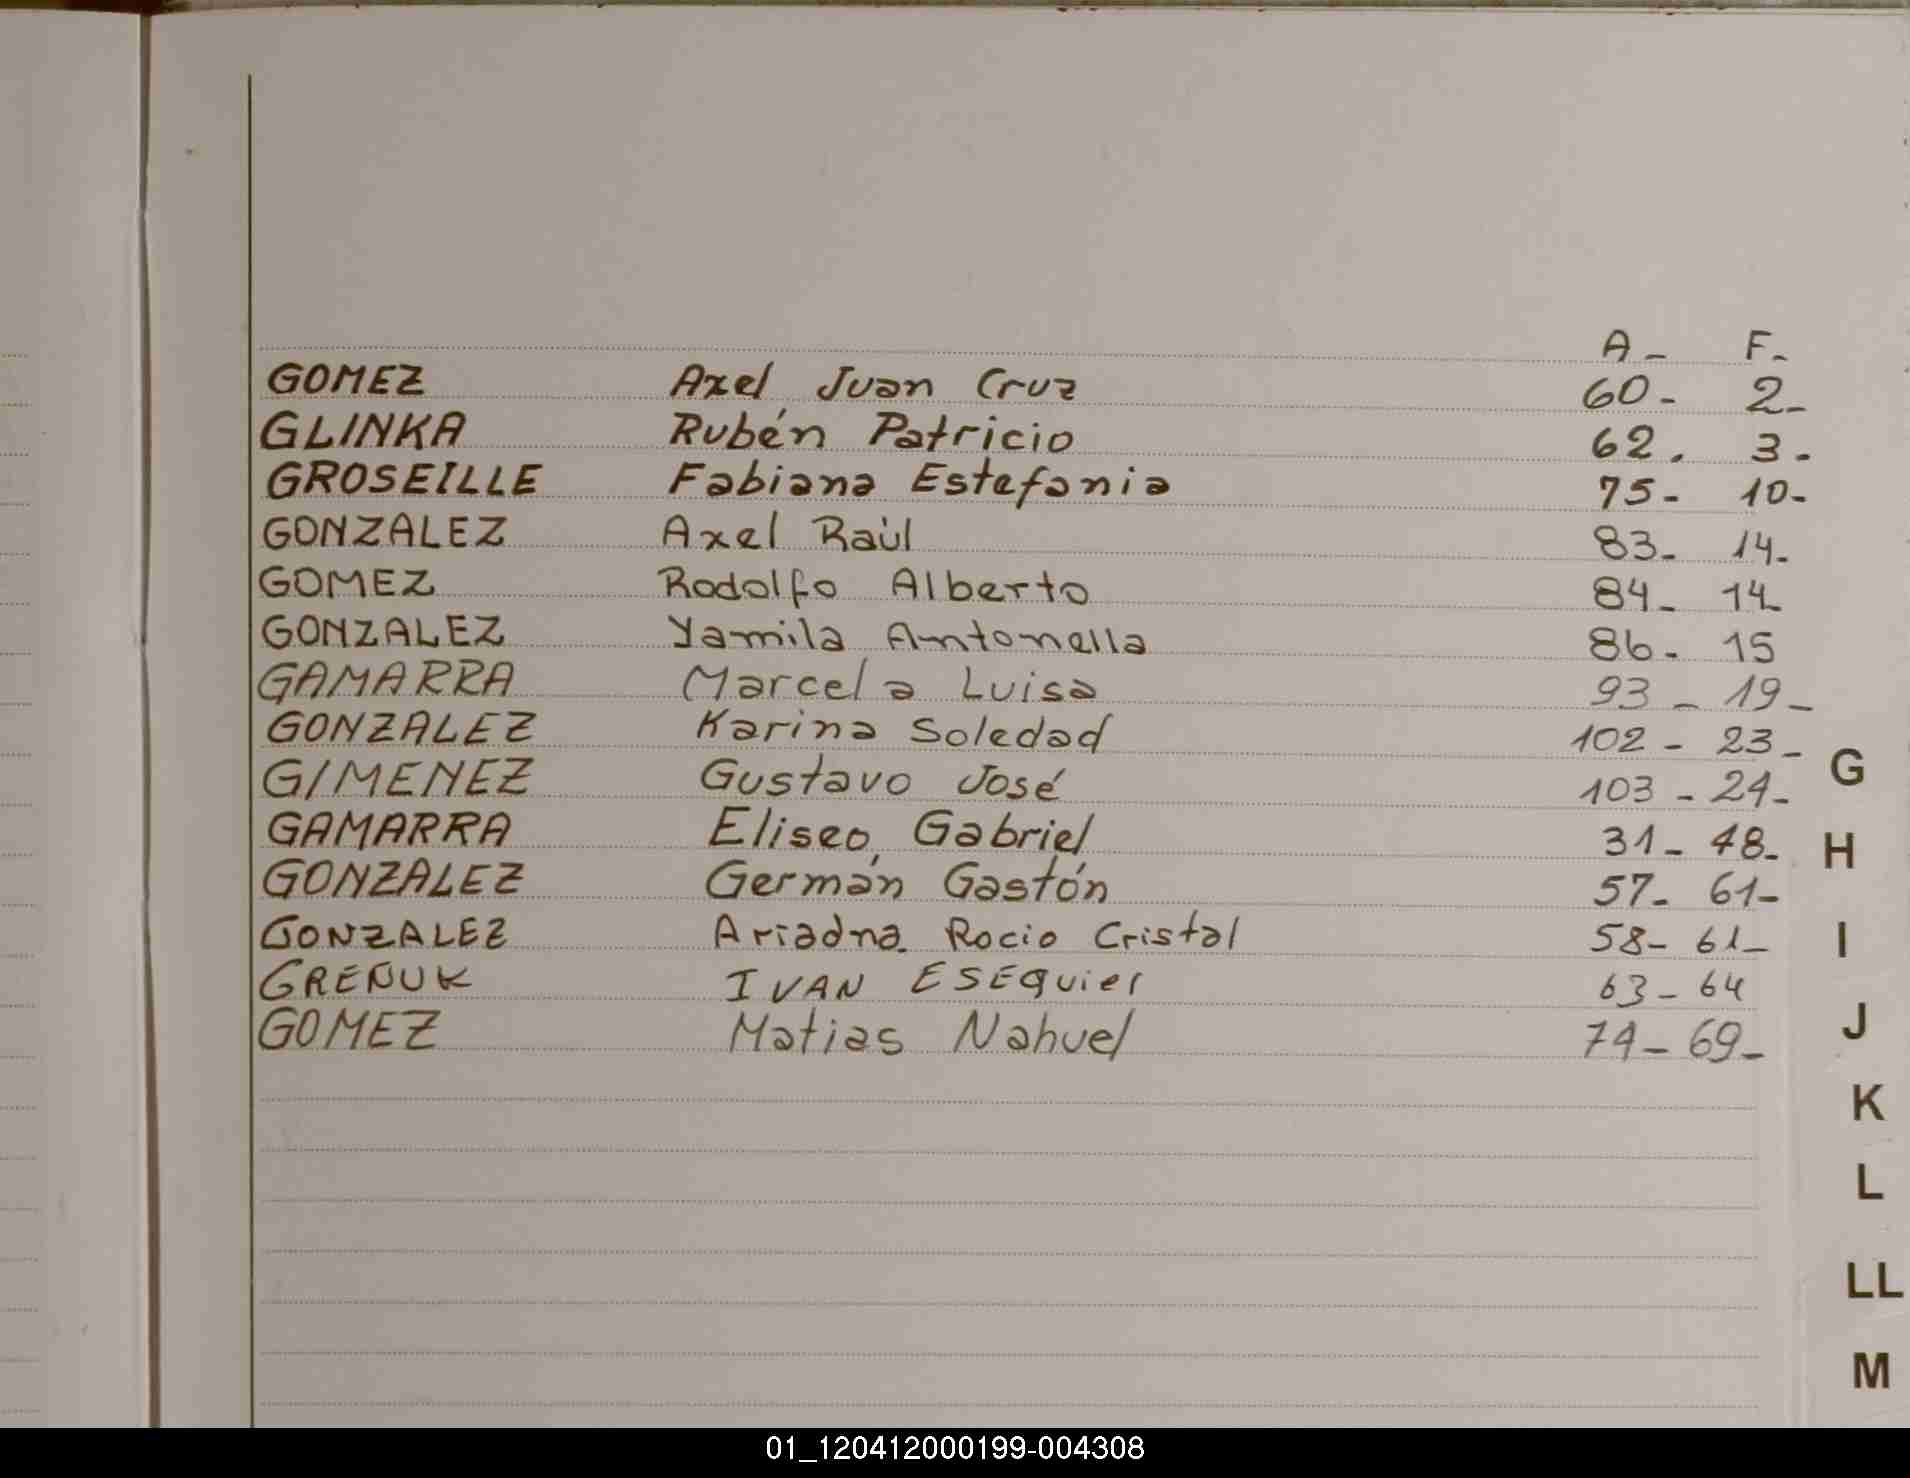 A - F.
GOMEZ Axel Juan Cruz 60 - 2 -
GLINKA Rubén Patricio 62 . 3 -
GROSEILLE Fabiana Estefania 75 - 10 -
GONZALEZ Axel Raúl 83 - 14 -
GOMEZ Rodolfo Alberto 84 - 14 -
GONZALEZ Yamila Antonella 86 - 15
GAMARRA Marcela Luisa 93 - 19 -
GONZALEZ Karina Soledad 102 - 23 -
GIMENEZ Gustavo José 103 - 24 -
GAMARRA Eliseo, Gabriel 31 - 48 -
GONZALEZ Germán Gastón 57 - 61 -
GONZALEZ Ariadna Rocio Cristal 58 - 61 -
GREÑUK IVAN ESEQuiel 63 - 64
GOMEZ Matias Nahuel 74 - 69 -
G
H
I
J
K
L
LL
M
01_120412000199-004308